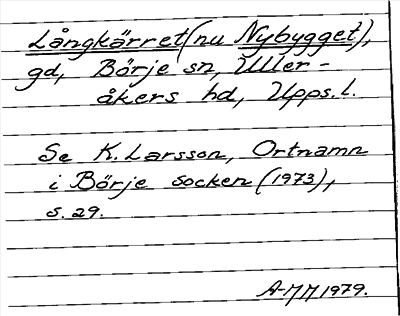 Långkärret (nu Nybygget),
gd, Börje sn, Uller-
åkers hd, Upps. l.
Se K. Larsson, Ortnamn
i Börje socken (1973),
s. 29.
1979.